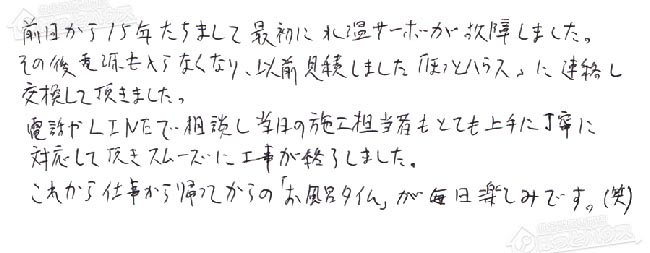 前回から15年たちまして最初に水温サーボが故障しました。
その後電源も入らなくなり、以前見積しました「ほっとハウス」に連絡し
交換して頂きました。
電話やLINEで相談し当日の施工担当者もとても上手に丁寧に
対応して頂きスムーズに工事が終了しました。
これから仕事から帰ってからの「お風呂タイム」が毎日楽しみです。(笑)